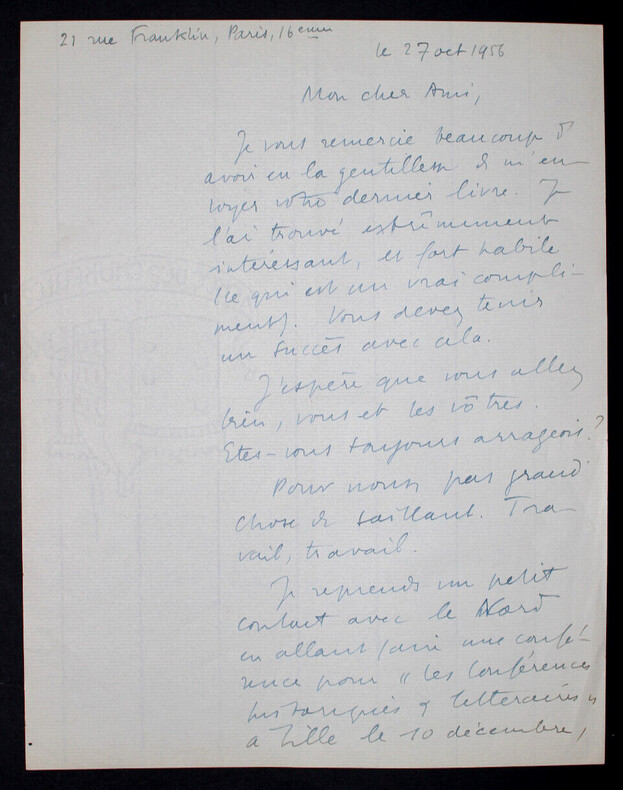 21 rue Franklin, Paris, 16eme
le 27 oct 1956
Mon cher Ami,
Je vous remercie beaucoup d'
avoir eu la gentillesse de m'en-
voyer votre dernier livre. Je
l'ai trouvé extrêmement
intéressant, et fort habile
(ce qui est un vrai compli-
ment). Vous devez tenir
un succès avec cela.
J'espère que vous allez
bien, vous et les vôtres.
Etes-vous toujours arrageois?
Pour nous, pas grand
chose de saillant. Tra-
vail, travail.
Je reprends un petit
contact avec le Nord
en allant faire une confé-
rence pour "les Conférences
historiques & littéraires"
à Lille le 10 décembre,